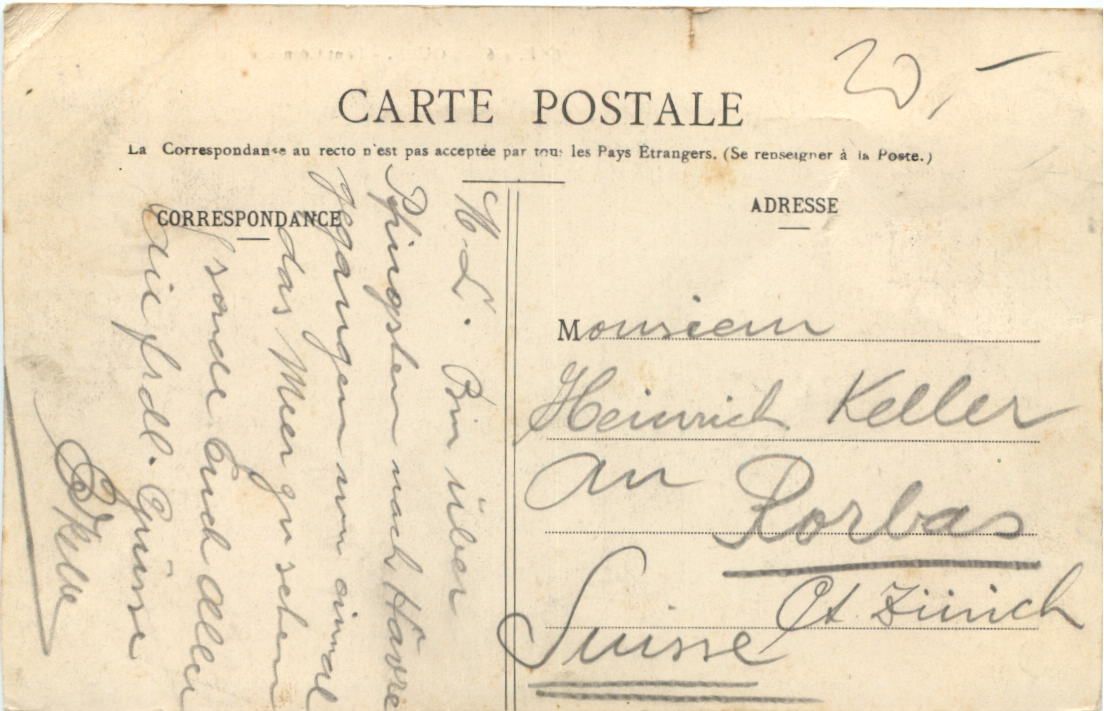 20,-
CARTE POSTALE
La Correspondance au recto n'est pas acceptée par tous les Pays Étrangers. (Se renseigner à la Poste.)
CORRESPONDANCE
M. L. Bin über
Pfingsten nach Hâvre
gegangen um einmal
das Meer zu sehen
sende Euch allen
die frdl. Grüsse
Keller
ADRESSE
Monsieur
Heinrich Keller
an Rorbas
Ct. Zürich
Suisse